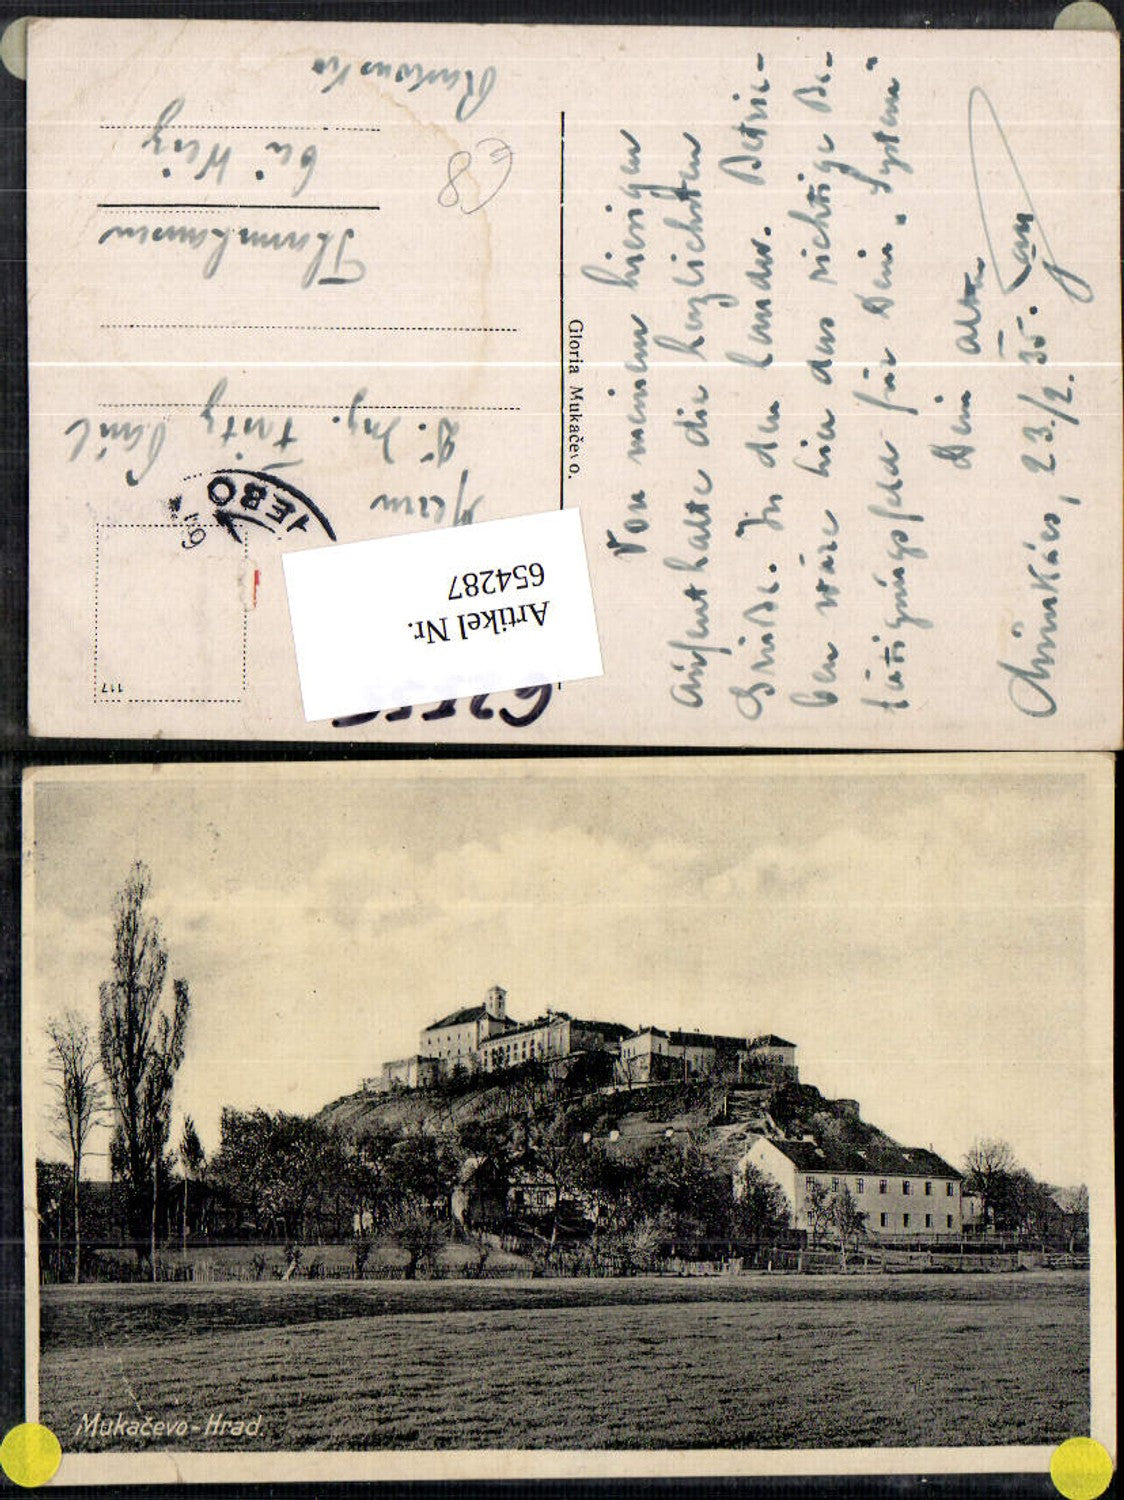 Von meinem hiesigen
Aufenthalte die herzlichsten
Grüße. In den landw. Betrie-
ben wäre hier das richtige Be-
tätigungsfeld für Dein „System"
Dein alter
Munkács, 23./2. 35.
Gloria Mukačevo.
117
Herrn
Dr. Ing. Fritz
Thannhausen
bei Weiz
€8
Artikel Nr.
654287
Mukačevo-Hrad.